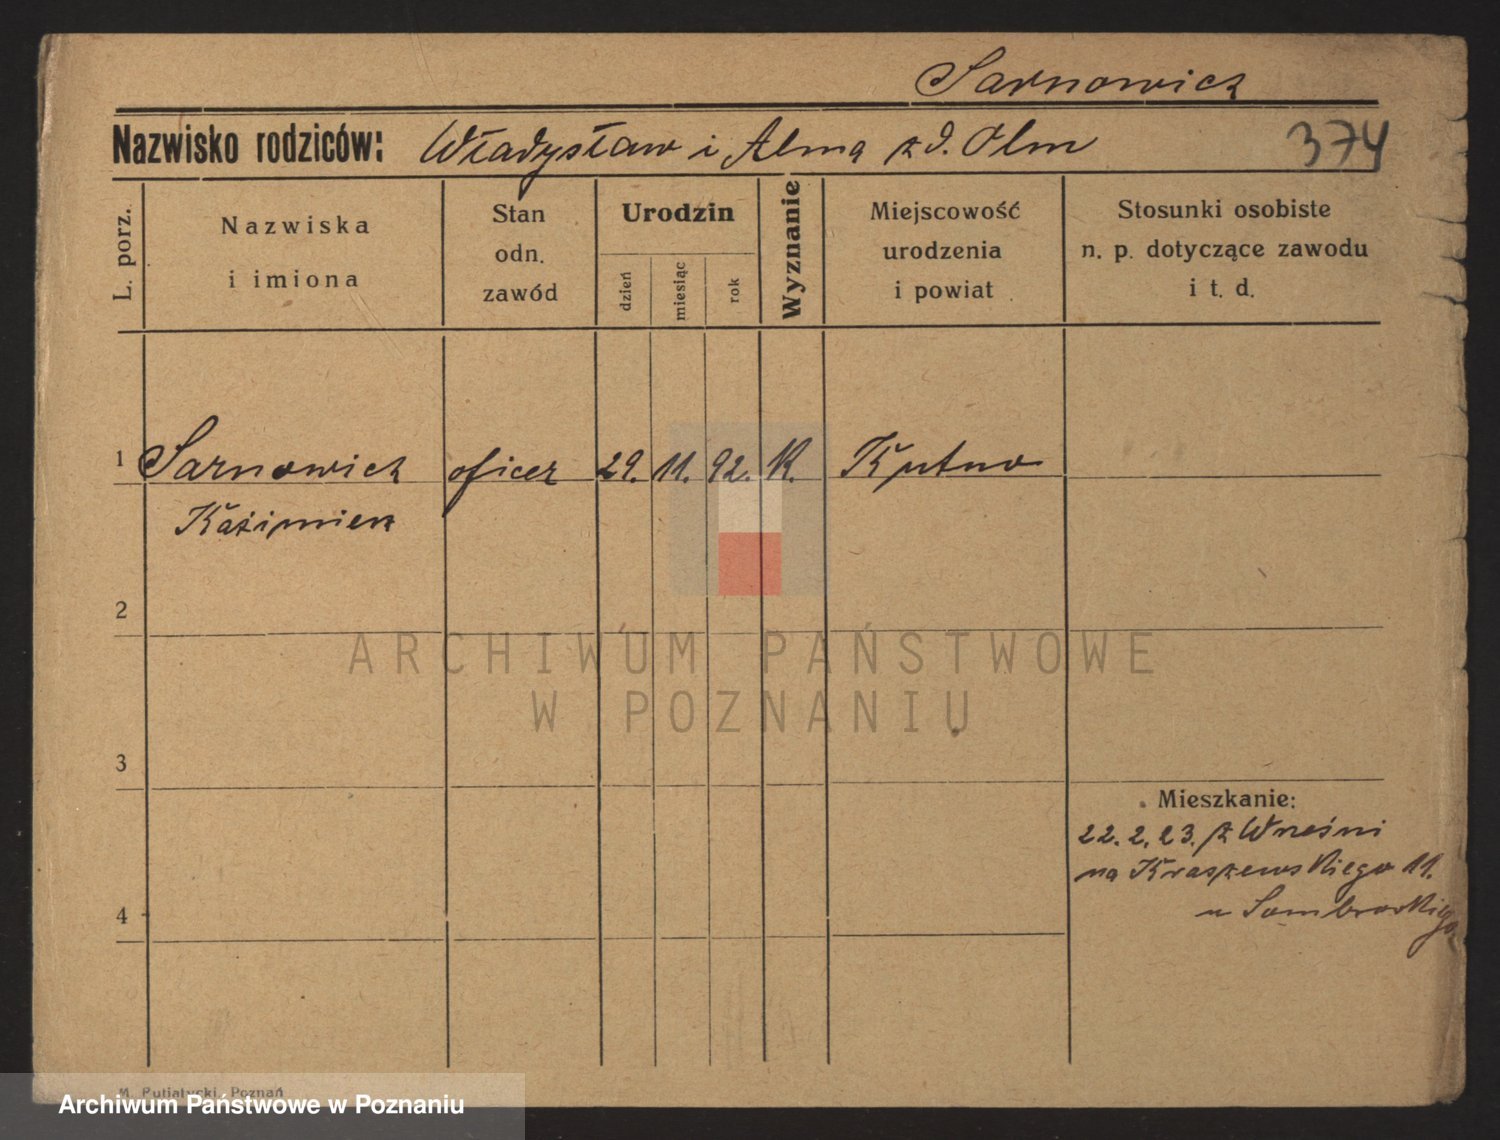 Sarnowicz
Nazwisko rodziców: Władysław i Alma z d. Olm 374
L. porz.
Nazwiska i imiona
Stan odn. zawód
Urodzin
dzień
miesiąc
rok
Wyznanie
Miejscowość urodzenia i powiat
Stosunki osobiste n. p. dotyczące zawodu i t. d.
1 Sarnowicz oficer 29. 11. 92. K. Kutno
Kazimierz
2
ARCHIWUM PAŃSTWOWE
W POZNANIU
3
Mieszkanie:
22. 2. 23. z Wrześni
na Kraszewskiego 11.
4
u Sombrowskiego
M. Putiatycki, Poznań
Archiwum Państwowe w Poznaniu